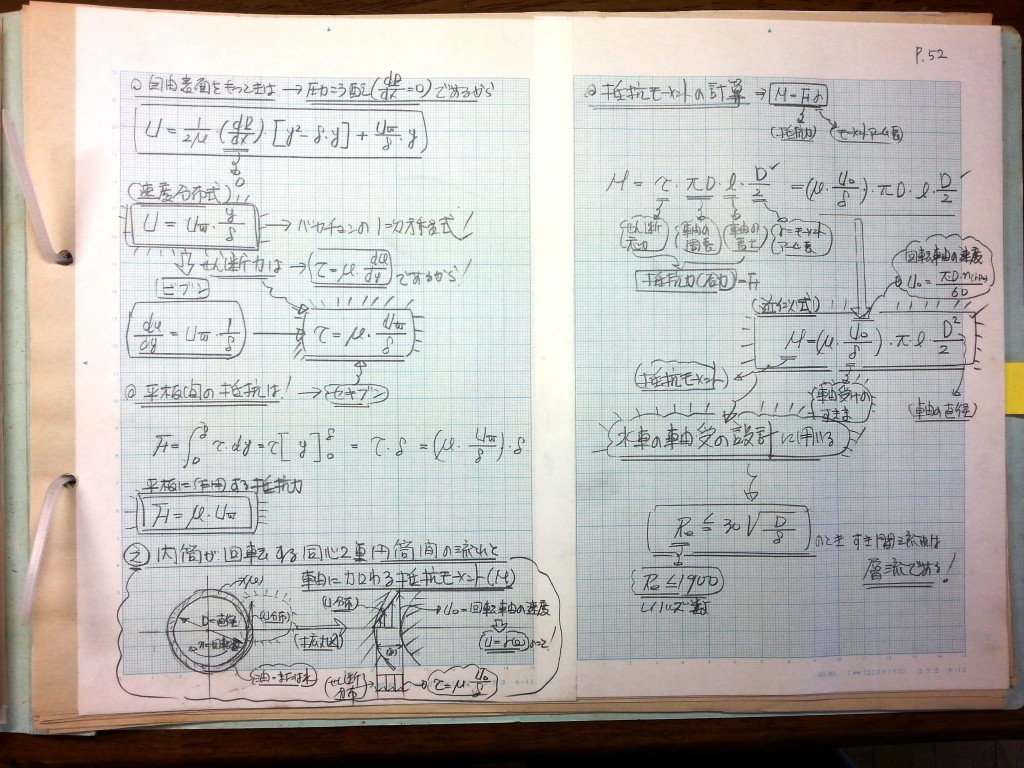 P.52
自由表面をもつときは → 圧力こう配(dP/dx=0)であるから
U = 1/2μ (dP/dx) [y²-δ·y] + U∞/δ·y
0
(速度分布式)
U = U∞·y/δ → バッキンガムの1=次方程式!
せん断力は → τ=μ·du/dy であるから!
ビブン
du/dy = U∞·1/δ → τ=μ·U∞/δ
◎ 平板間の抵抗は! → セキブン
F=∫τ·dy=τ[y] = τ·δ =(μ·U∞/δ)·δ
平板に作用する抵抗力
F=μ·U∞
② 内筒が回転する同心2重円筒間の流れと
軸に加わる抵抗モーメント(M)
D=直径
n=回転数
(U分布)
(拡大図)
(U分布)
U₀=回転軸の速度
油-または水
(せん断分布)
τ=μ·U₀/δ
◎ 抵抗モーメントの計算 → M=F·r
(抵抗力)
モーメントアーム長
M = τ·πD·l·D/2 =(μ·U₀/δ)·πD·l·D/2
せん断応力
軸の周長
軸の長さ
r=モーメントアーム長
抵抗力(応力)=F
回転軸の速度
U₀=πD·n(rpm)/60
(近似式)
M=(μ·U₀/δ)·π·l·D²/2
(抵抗モーメント)
軸受けのすきま
(軸の直径)
水車の軸受の設計に用いる
Re≦30√D/δ のとき すき間流れは
層流である!
Re≦1900
レイノルズ数